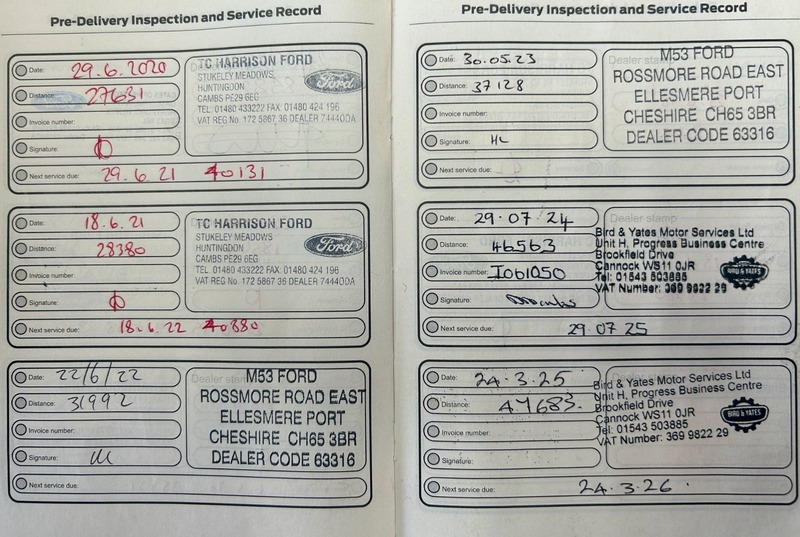 Pre-Delivery Inspection and Service Record
Date: 29.6.2020
Distance: 27631
Invoice number:
Signature:
Next service due: 29.6.21 40131
TC HARRISON FORD
STUKELEY MEADOWS,
HUNTINGDON
CAMBS PE29 6EG
TEL. 01480 433222 FAX. 01480 424 196
VAT REG No. 172 5867 36 DEALER 74440DA
Ford
Date: 18.6.21
Distance: 28380
Invoice number:
Signature:
Next service due: 18.6.22 40880
TC HARRISON FORD
STUKELEY MEADOWS,
HUNTINGDON
CAMBS PE29 6EG
TEL. 01480 433222 FAX. 01480 424 196
VAT REG No. 172 5867 36 DEALER 74440DA
Ford
Date: 22/6/22
Distance: 31992
Invoice number:
Signature:
Next service due:
Dealer stamp
M53 FORD
ROSSMORE ROAD EAST
ELLESMERE PORT
CHESHIRE CH65 3BR
DEALER CODE 63316
Pre-Delivery Inspection and Service Record
Date: 30.05.23
Distance: 37128
Invoice number:
Signature: HL
Next service due:
Dealer stamp
M53 FORD
ROSSMORE ROAD EAST
ELLESMERE PORT
CHESHIRE CH65 3BR
DEALER CODE 63316
Date: 29.07.24
Distance: 46563
Invoice number: I061050
Signature:
Next service due: 29.07.25
Dealer stamp
Bird & Yates Motor Services Ltd
Unit H, Progress Business Centre
Brookfield Drive
Cannock WS11 0JR
Tel: 01543 503885
VAT Number: 369 9822 29
BIRD & YATES
Date: 24.3.25
Distance: 47683.
Invoice number:
Signature:
Next service due: 24.3.26.
Dealer stamp
Bird & Yates Motor Services Ltd
Unit H, Progress Business Centre
Brookfield Drive
Cannock WS11 0JR
Tel: 01543 503885
VAT Number: 369 9822 29
BIRD & YATES